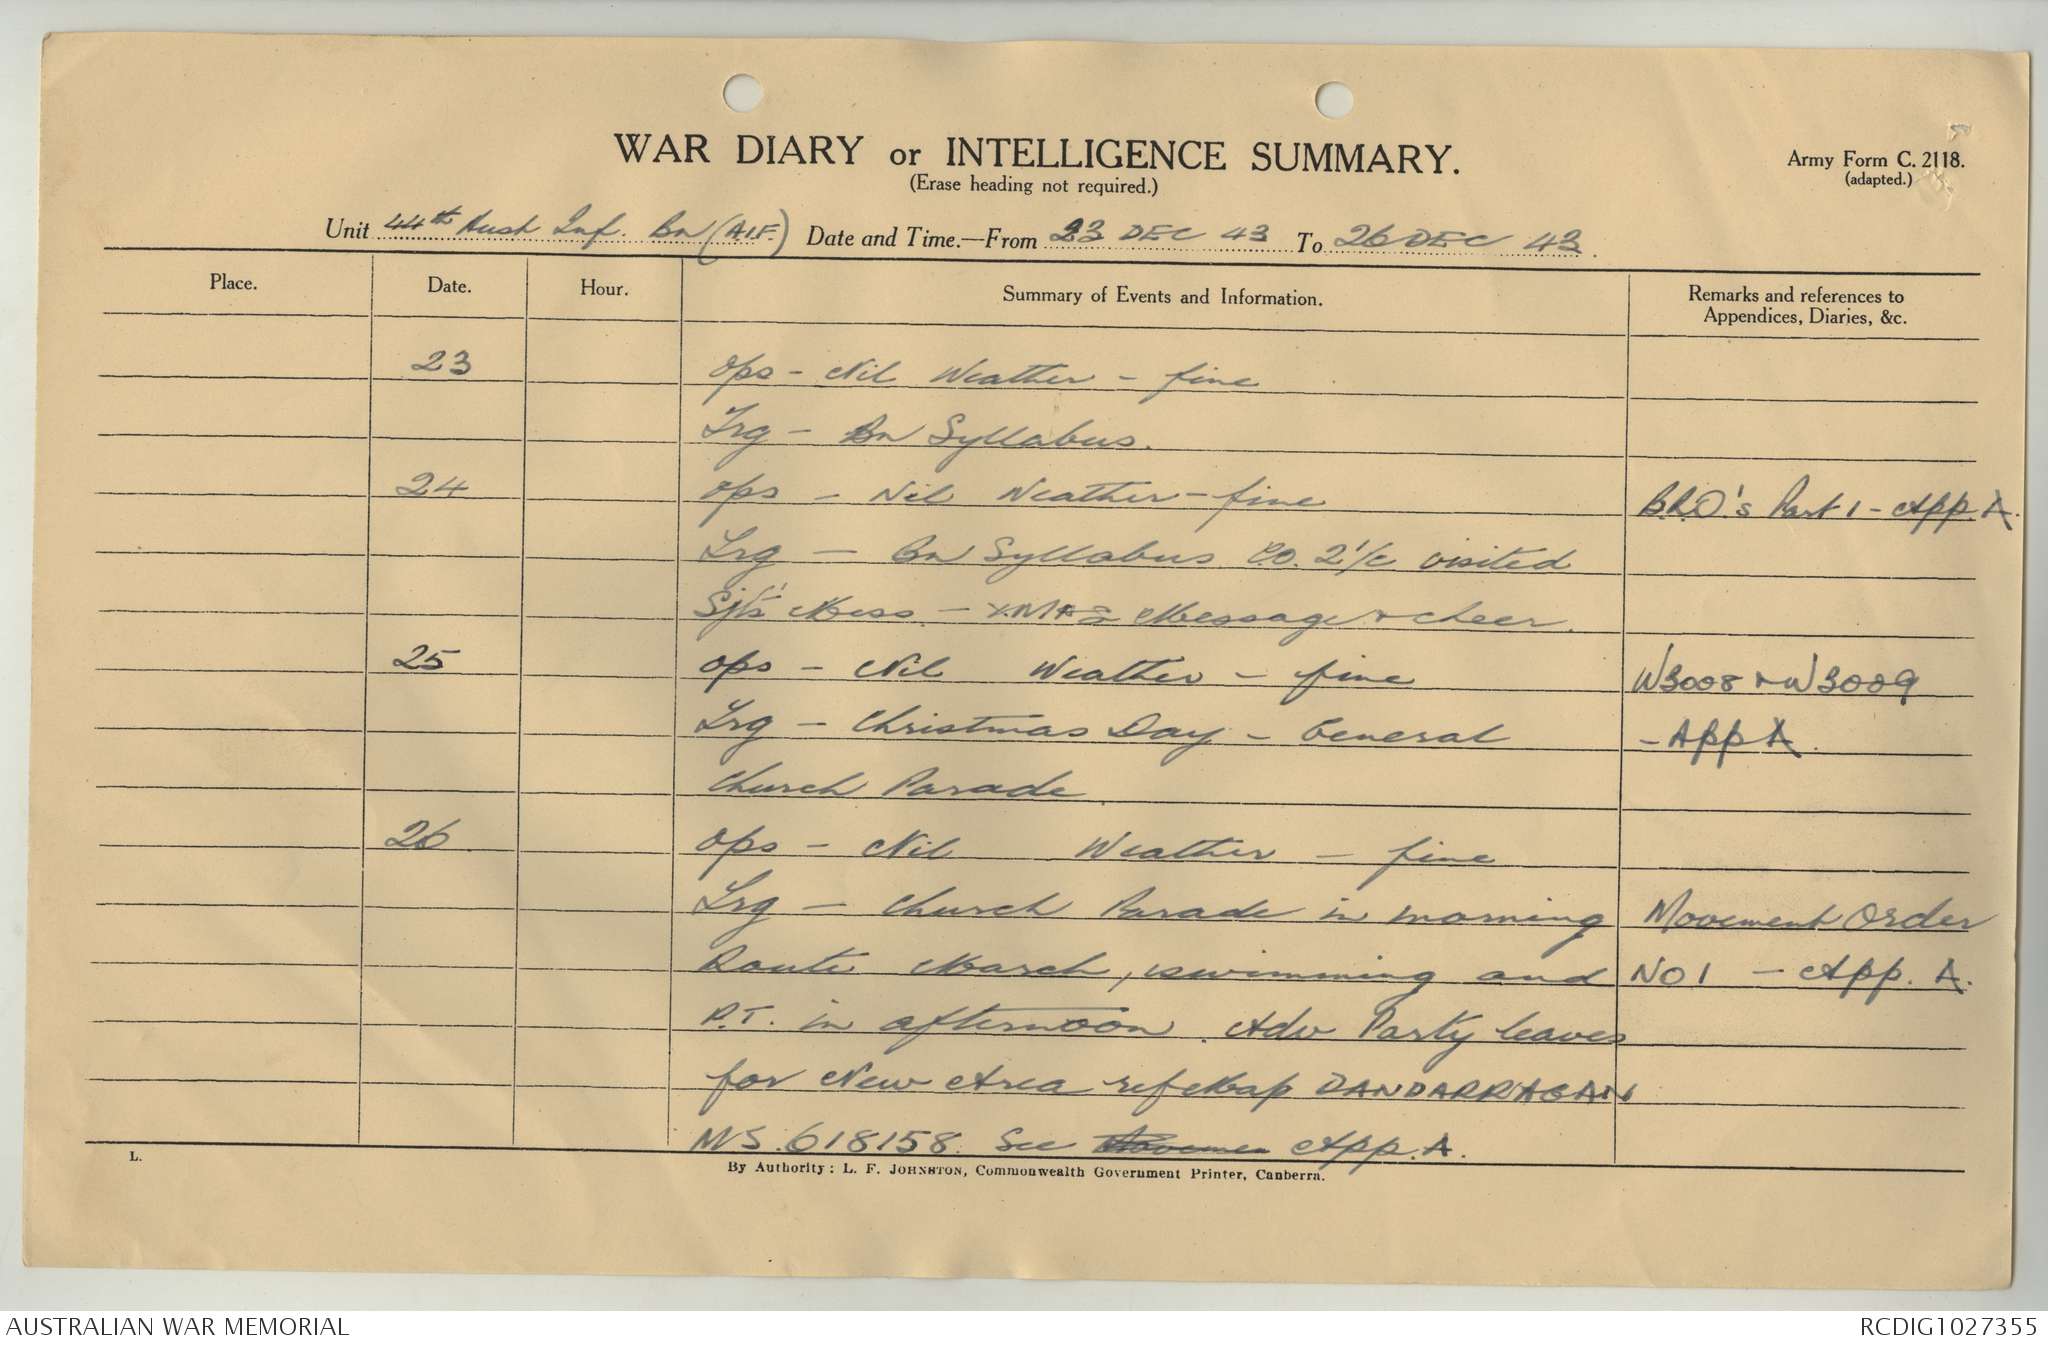 WAR DIARY or INTELLIGENCE SUMMARY.
(Erase heading not required.)
Army Form C. 2118.
(adapted.)
Unit 44th Aust Inf. Bn (A.I.F.) Date and Time.—From 23 DEC 43 To 26 DEC 43.
Place. Date. Hour. Summary of Events and Information. Remarks and references to
Appendices, Diaries, &c.
23 Ops - Nil Weather - fine
Trg - Bn Syllabus.
24 Ops - Nil Weather - fine B.R.O's Part 1 - App. A.
Trg - Bn Syllabus C.O. 2 i/c visited
Sjts' Mess. - X.MAS Message & cheer.
25 Ops - Nil Weather - fine W3008 & W3009
Trg - Christmas Day - General - App A.
Church Parade.
26. Ops - Nil Weather - fine
Trg - Church Parade in morning Movement Order
Route March, swimming and NO 1 - App. A.
P.T. in afternoon. Adv Party leaves
for New Area ref Map DANDARRAGAN
MS. 618158. See Movemen App. A.
L.
By Authority: L. F. JOHNSTON, Commonwealth Government Printer, Canberra.
AUSTRALIAN WAR MEMORIAL
RCDIG1027355